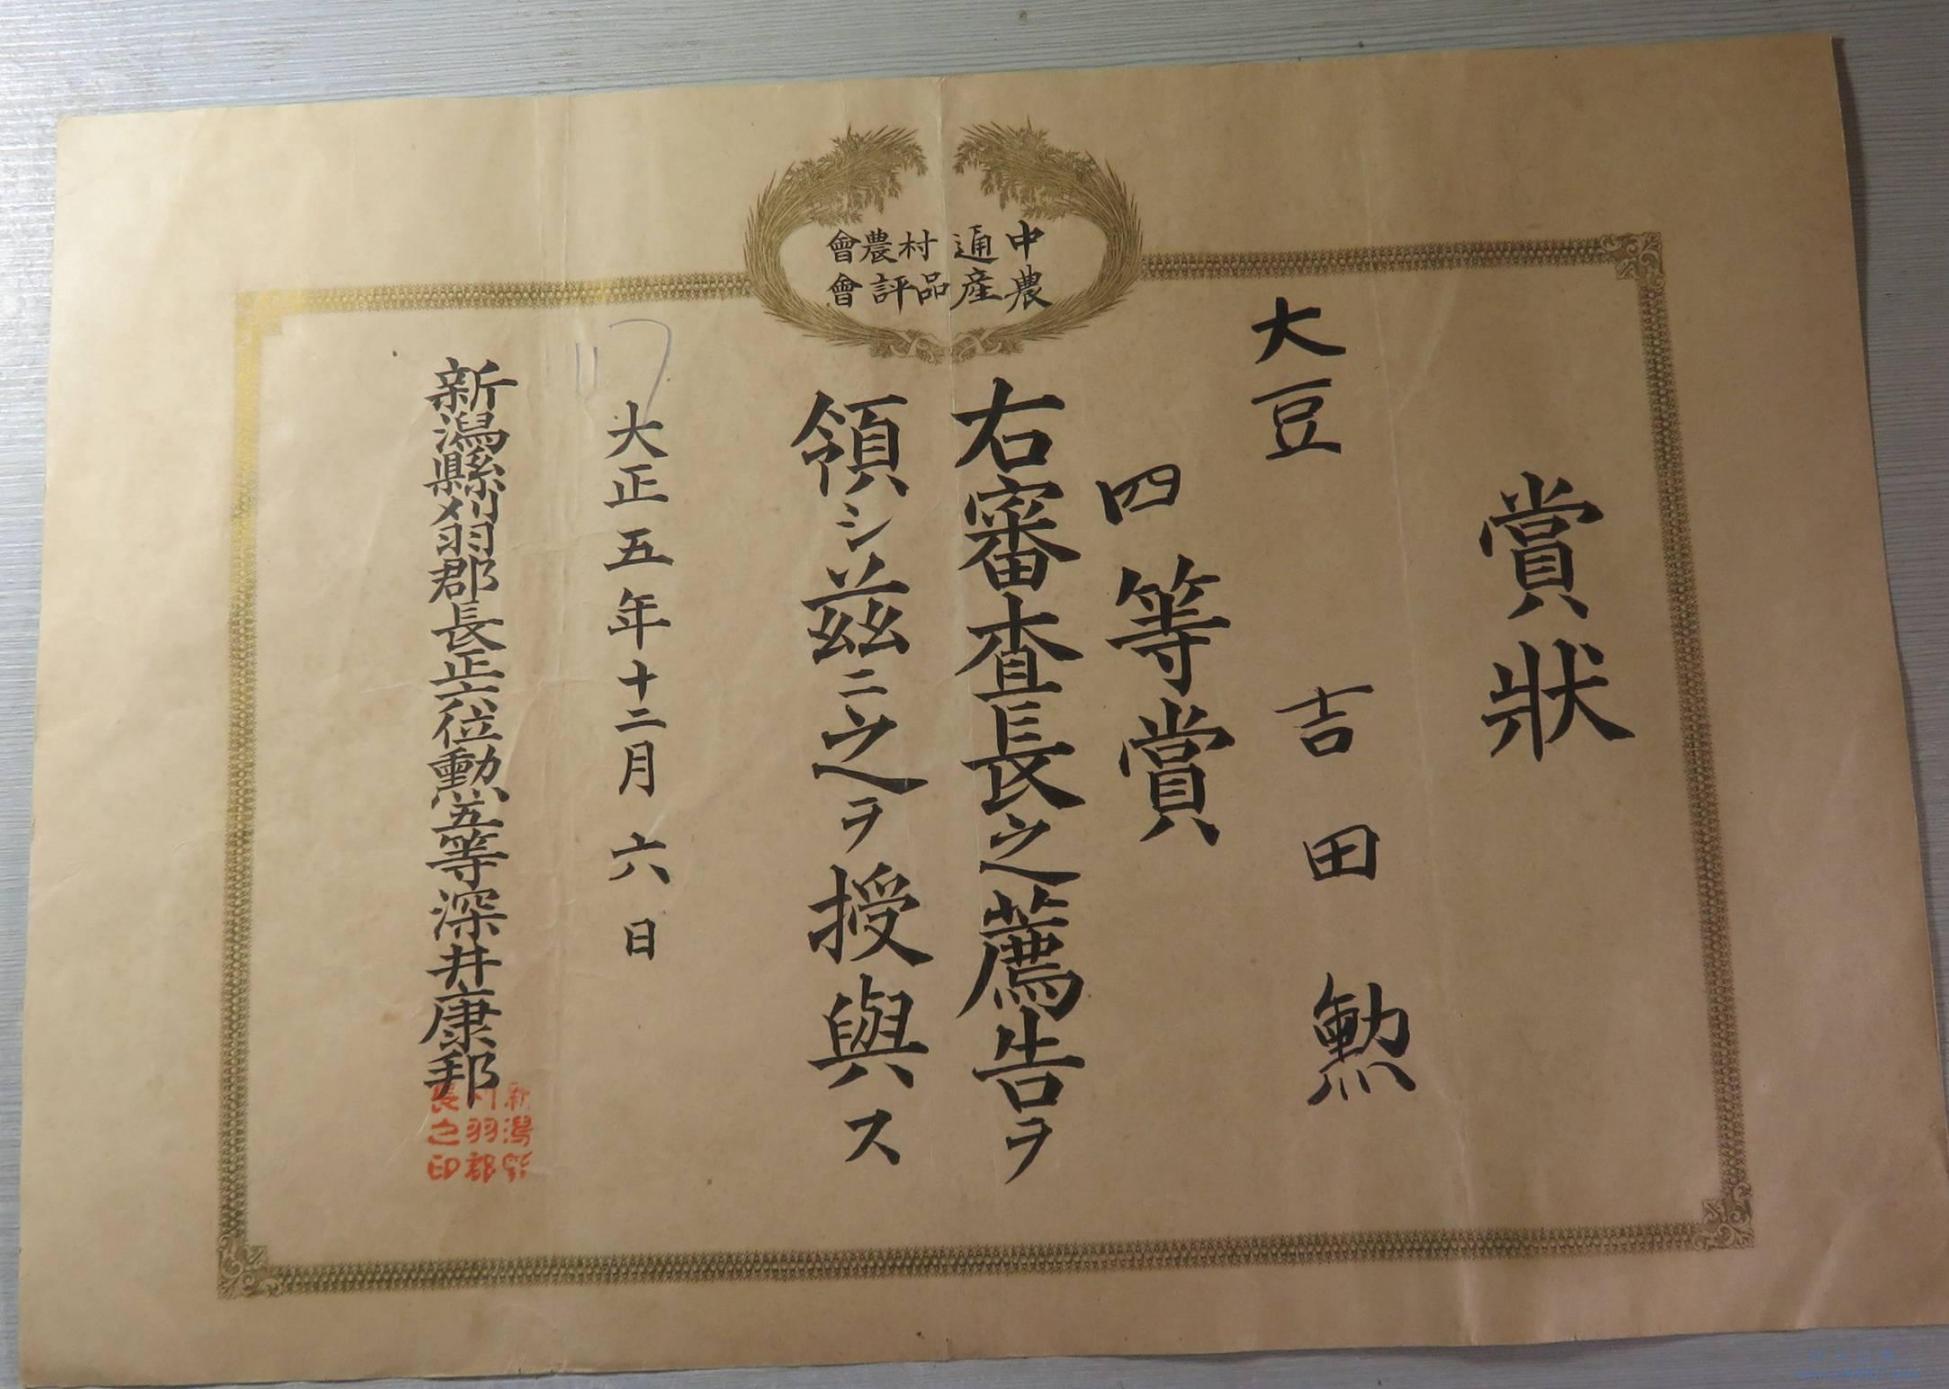 中通村農會
農産品評會
賞狀
大豆
吉田勲
四等賞
右審査長之薦告ヲ
領シ茲ニ之ヲ授與ス
大正五年十二月六日
新潟縣刈羽郡長正六位勲五等深井康邦
新潟縣
刈羽郡
長之印